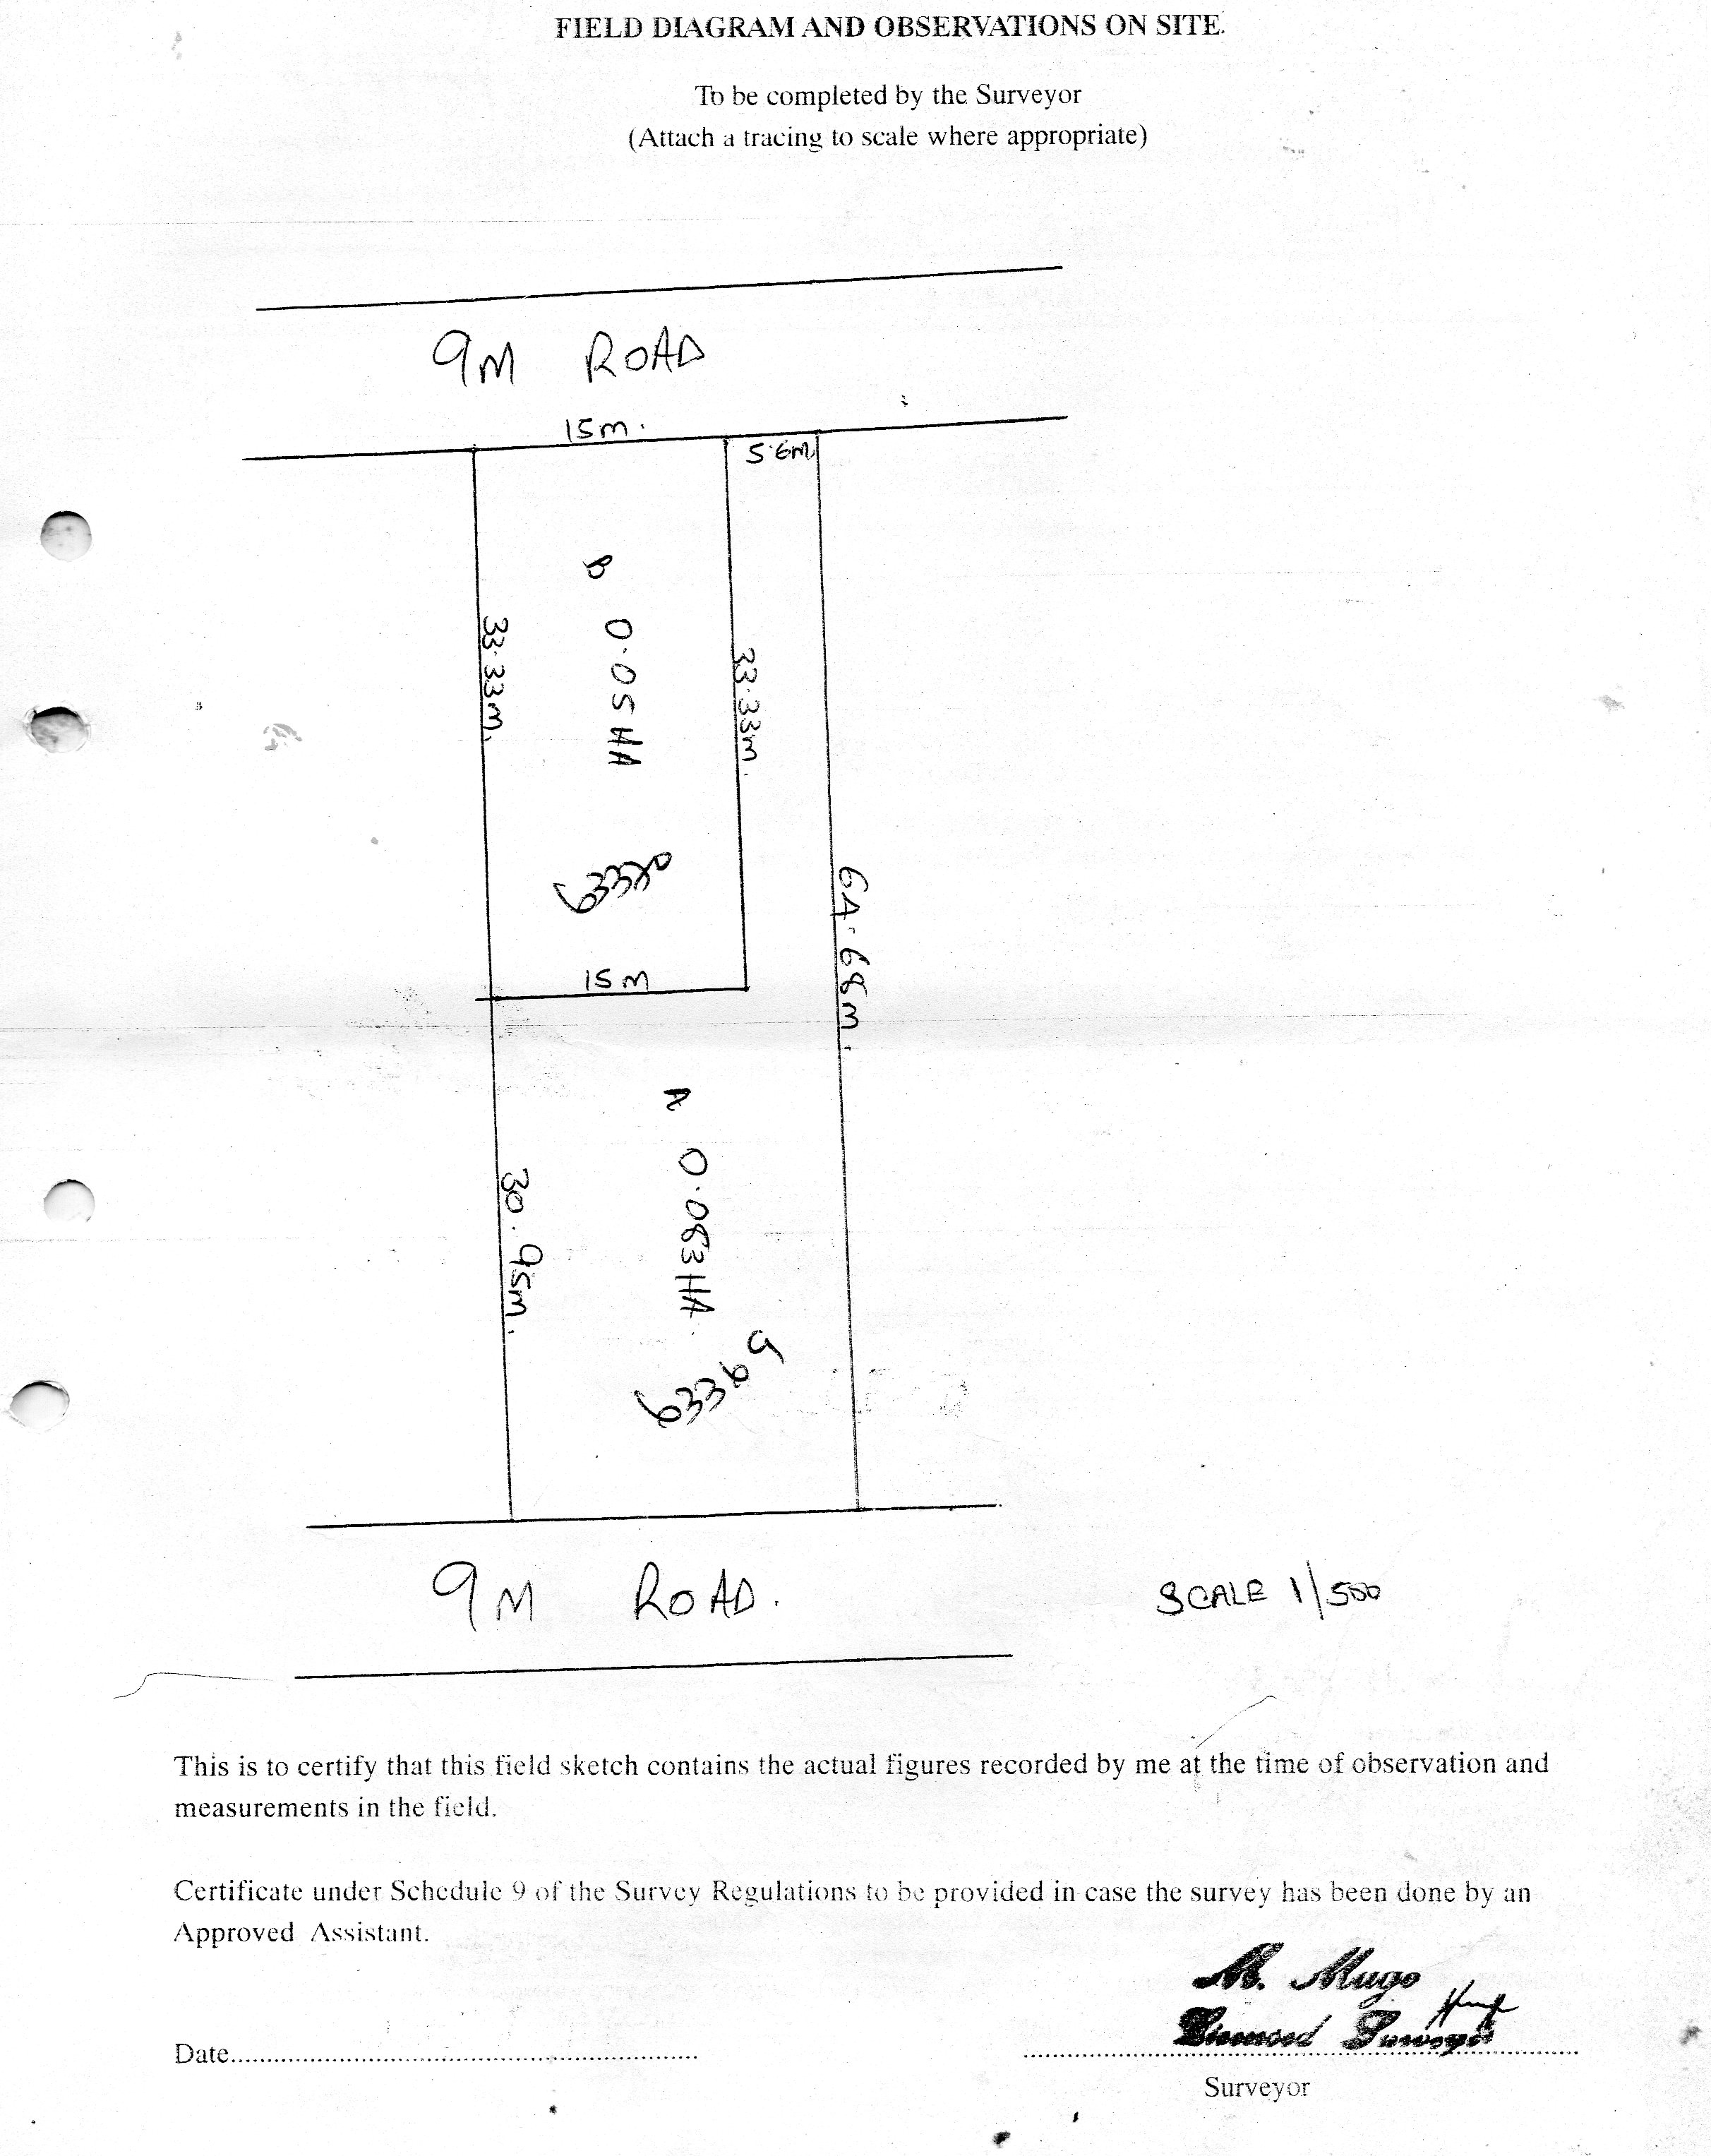 FIELD DIAGRAM AND OBSERVATIONS ON SITE.
To be completed by the Surveyor
(Attach a tracing to scale where appropriate)
9M ROAD
15m.
5.6m
B 0.05HA
33.33m.
33.33m.
63370
15m
64.68m.
A 0.083HA
30.95m.
63369
9M ROAD.
SCALE 1/500
This is to certify that this field sketch contains the actual figures recorded by me at the time of observation and
measurements in the field.
Certificate under Schedule 9 of the Survey Regulations to be provided in case the survey has been done by an
Approved Assistant.
M. Mugo
Licensed Surveyor
Date
Surveyor